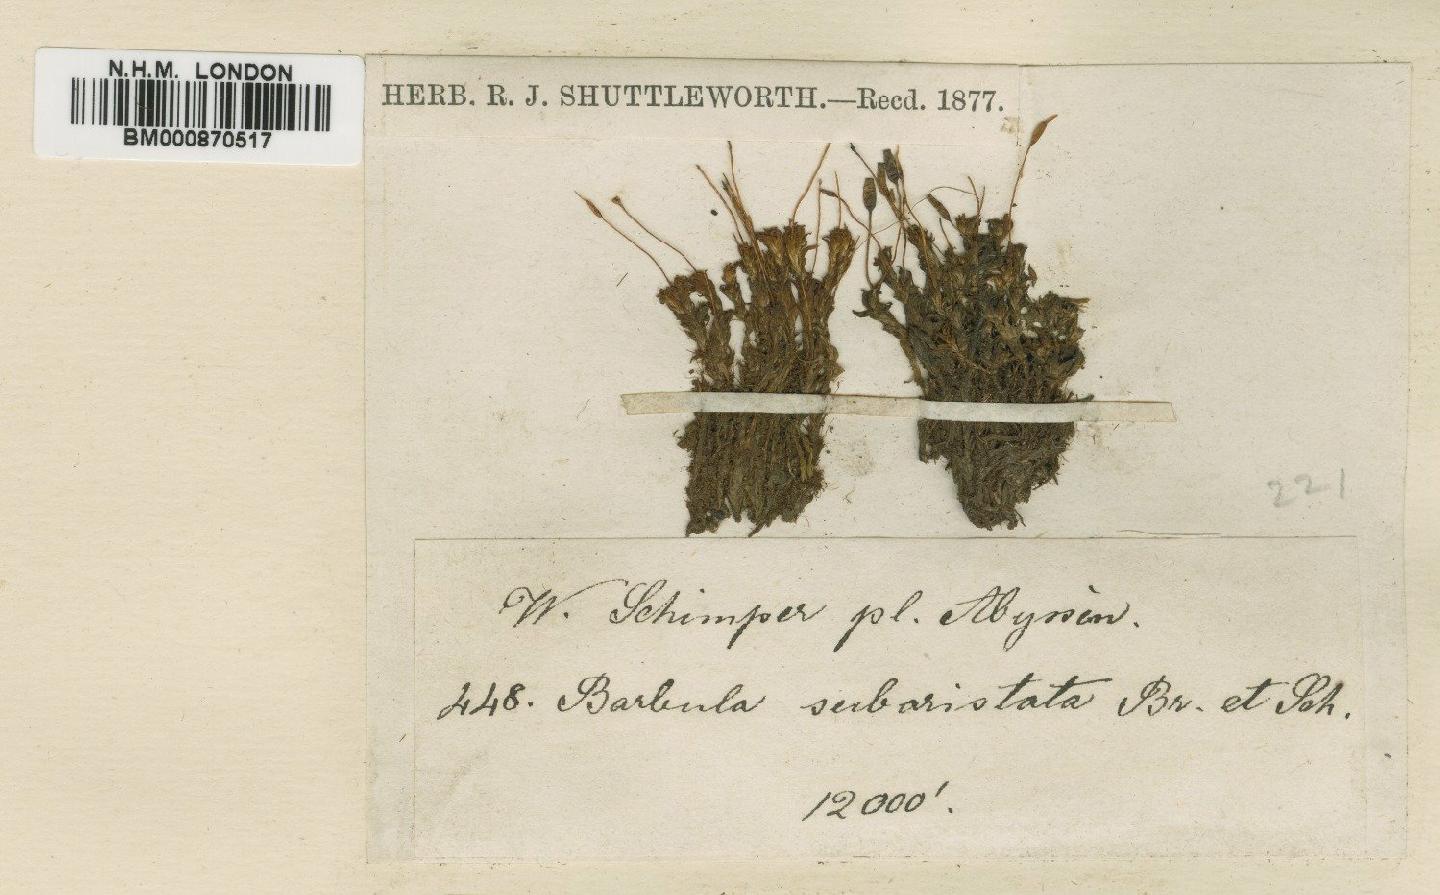 N.H.M. LONDON
BM000870517
HERB. R. J. SHUTTLEWORTH.—Recd. 1877.
221
W. Schimper pl. Abyssin.
448. Barbula subaristata Br. et Sch.
12000'.